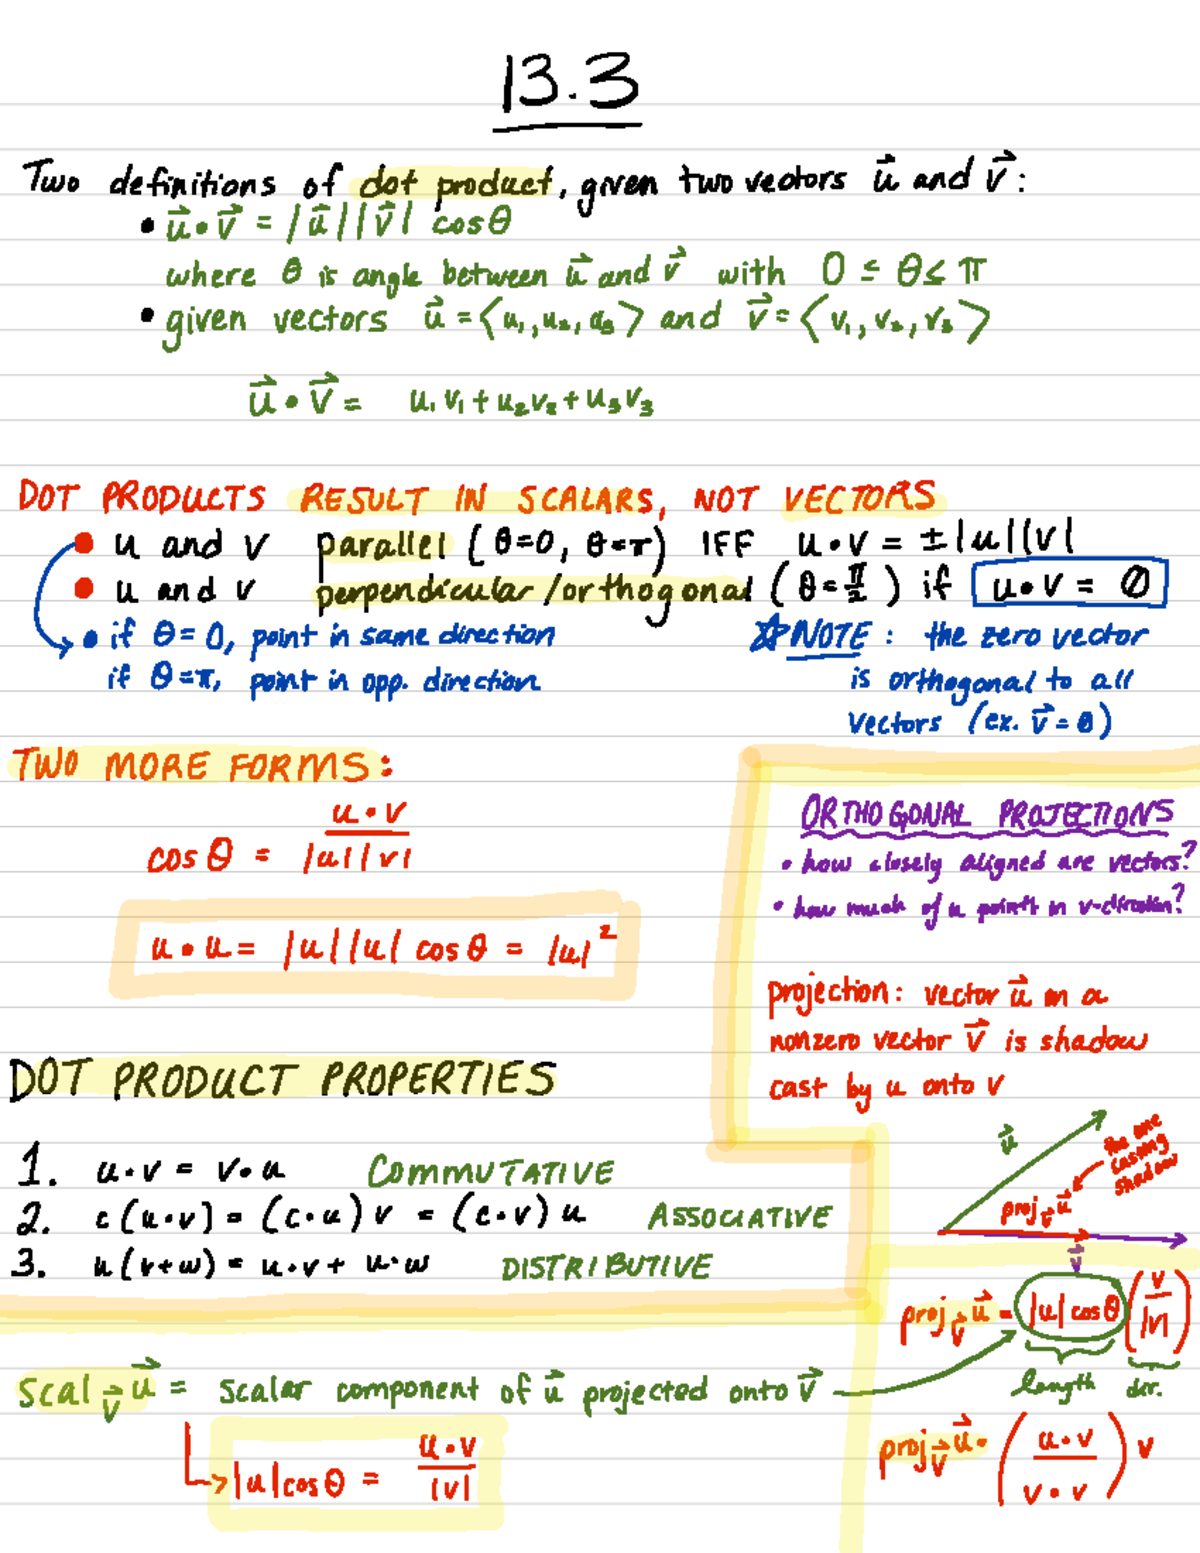 13.3
Two definitions of dot product, given two vectors u⃗ and v⃗ :
• u⃗ • v⃗ = |u⃗||v⃗| cosθ
where θ is angle between u⃗ and v⃗ with 0 ≤ θ ≤ π
• given vectors u⃗ = ⟨u₁, u₂, u₃⟩ and v⃗ = ⟨v₁, v₂, v₃⟩
u⃗ • v⃗ = u₁v₁ + u₂v₂ + u₃v₃
DOT PRODUCTS RESULT IN SCALARS, NOT VECTORS
• u and v parallel (θ=0, θ=π) IFF u•v = ±|u||v|
• u and v perpendicular/orthogonal (θ=π/2) if u•v = 0
• if θ = 0, point in same direction
if θ = π, point in opp. direction
☆NOTE : the zero vector
is orthogonal to all
vectors (ex. v⃗ = 0)
TWO MORE FORMS:
cos θ = u•v / |u||v|
u • u = |u||u| cos θ = |u|²
ORTHOGONAL PROJECTIONS
• how closely aligned are vectors?
• how much of u points in v-direction?
projection: vector u⃗ on a
nonzero vector v⃗ is shadow
cast by u onto v
u⃗
the one
casting
shadow
proj_v⃗ u⃗
v⃗
DOT PRODUCT PROPERTIES
1. u•v = v•u COMMUTATIVE
2. c(u•v) = (c•u)v = (c•v)u ASSOCIATIVE
3. u(v+w) = u•v + u•w DISTRIBUTIVE
proj_v⃗ u⃗ = |u| cosθ (v/|v|)
length dir.
scal_v⃗ u⃗ = scalar component of u⃗ projected onto v⃗
|u|cosθ = u•v / |v|
proj_v⃗ u⃗ = (u•v / v•v) v